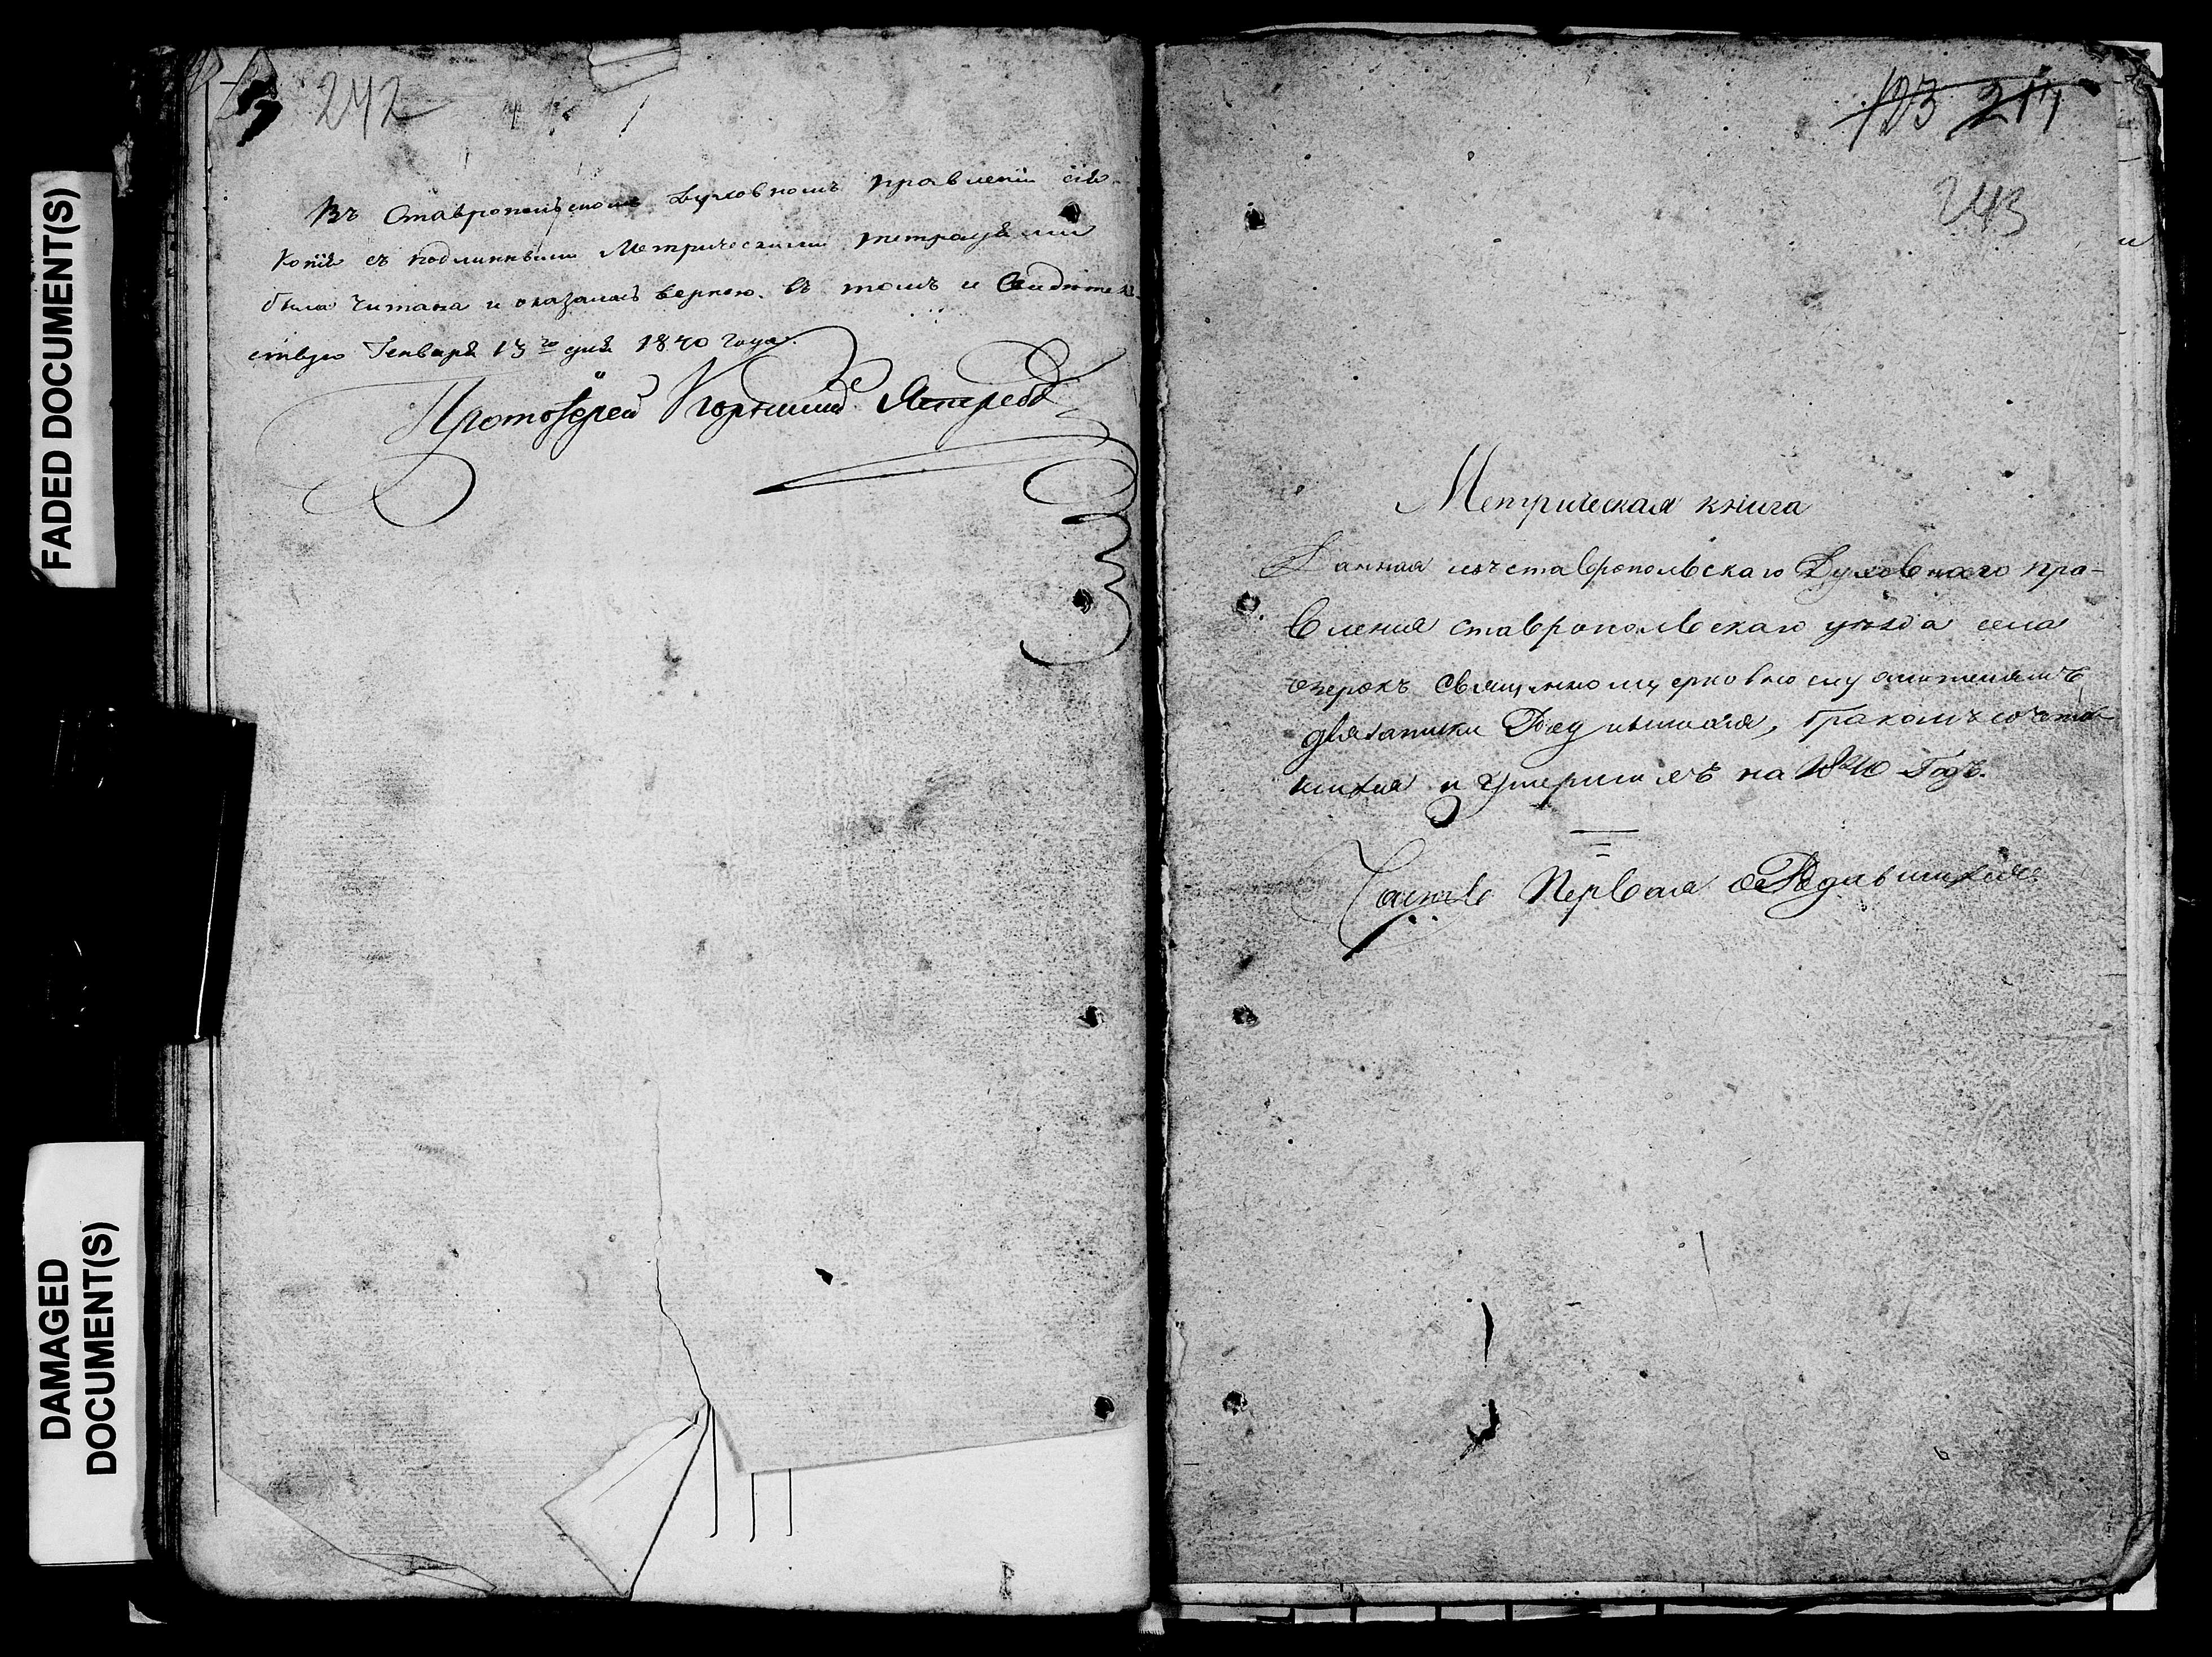 FADED DOCUMENT(S)
DAMAGED
DOCUMENT(S)
242
Въ Ставропольскомъ Духовномъ правленіи сія
копія съ подлинными Метрическими тетрадями
была читана и оказалась верною. въ томъ и Свидѣтель-
ствую Генваря 13го дня 1840 года.
Протоіерей
123 244
243
Метрическая книга
Данная изъ ставропольскаго Духовнаго пра-
вления ставропольскаго уѣзда села
озерокъ Священноцерковнослужителямъ
для записки Родившихся, бракомъ сочета-
вшихся и Умершихъ на 1840 Годъ.
Часть Первая о Родившихся